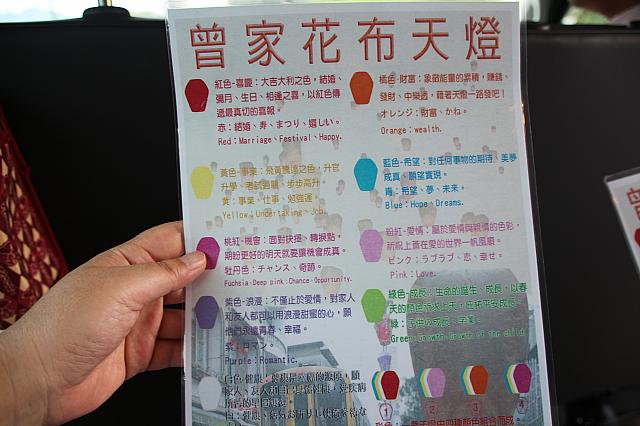 曾家花布天燈
紅色-喜慶：大吉大利之色，結婚、
彌月、生日、相逢之喜，以紅色傳
遞最真切的喜報。
赤：結婚、寿、まつり、嬉しい。
Red：Marriage、Festival、Happy.
橘色-財富：象徵能量的累積，賺錢、
發財、中樂透，藉著天燈一路發吧！
オレンジ：財富、かね。
Orange：wealth.
黃色-事業：飛黃騰達之色，升官
升學、考試過關、步步高升。
黃：事業、仕事、勉強運。
Yellow：Undertaking、Job.
藍色-希望：對任何事物的期待、美夢
成真、願望實現。
青：希望、夢、未來。
Blue：Hope、Dreams.
桃紅-機會：面對抉擇、轉捩點，
期盼更好的明天就要讓機會成真。
牡丹色：チャンス、奇跡。
Fuchsia-Deep pink：Chance、Opportunity.
粉紅-愛情：屬於愛情與親情的色彩，
祈祝上蒼在愛的世界一帆風順。
ピンク：ラブラブ、恋、幸せ。
Pink：Love.
紫色-浪漫：不僅止於愛情，對家人
和友人都可以用浪漫甜蜜的心，願
他們永遠青春、幸福。
紫：ロマン。
Purple：Romantic.
綠色-成長：生命的誕生、成長，以春
Green：Growth、Growth of the child
白色-健康：
1
2
3
4